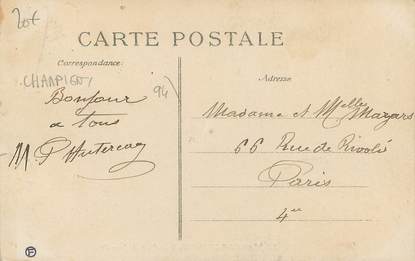 20€
CARTE POSTALE
Correspondance
CHAMPIGNY
94
Bonjour
a tous
M
Adresse
Madame et Melle Mazars
66 Rue de Rivoli
Paris
4e
F